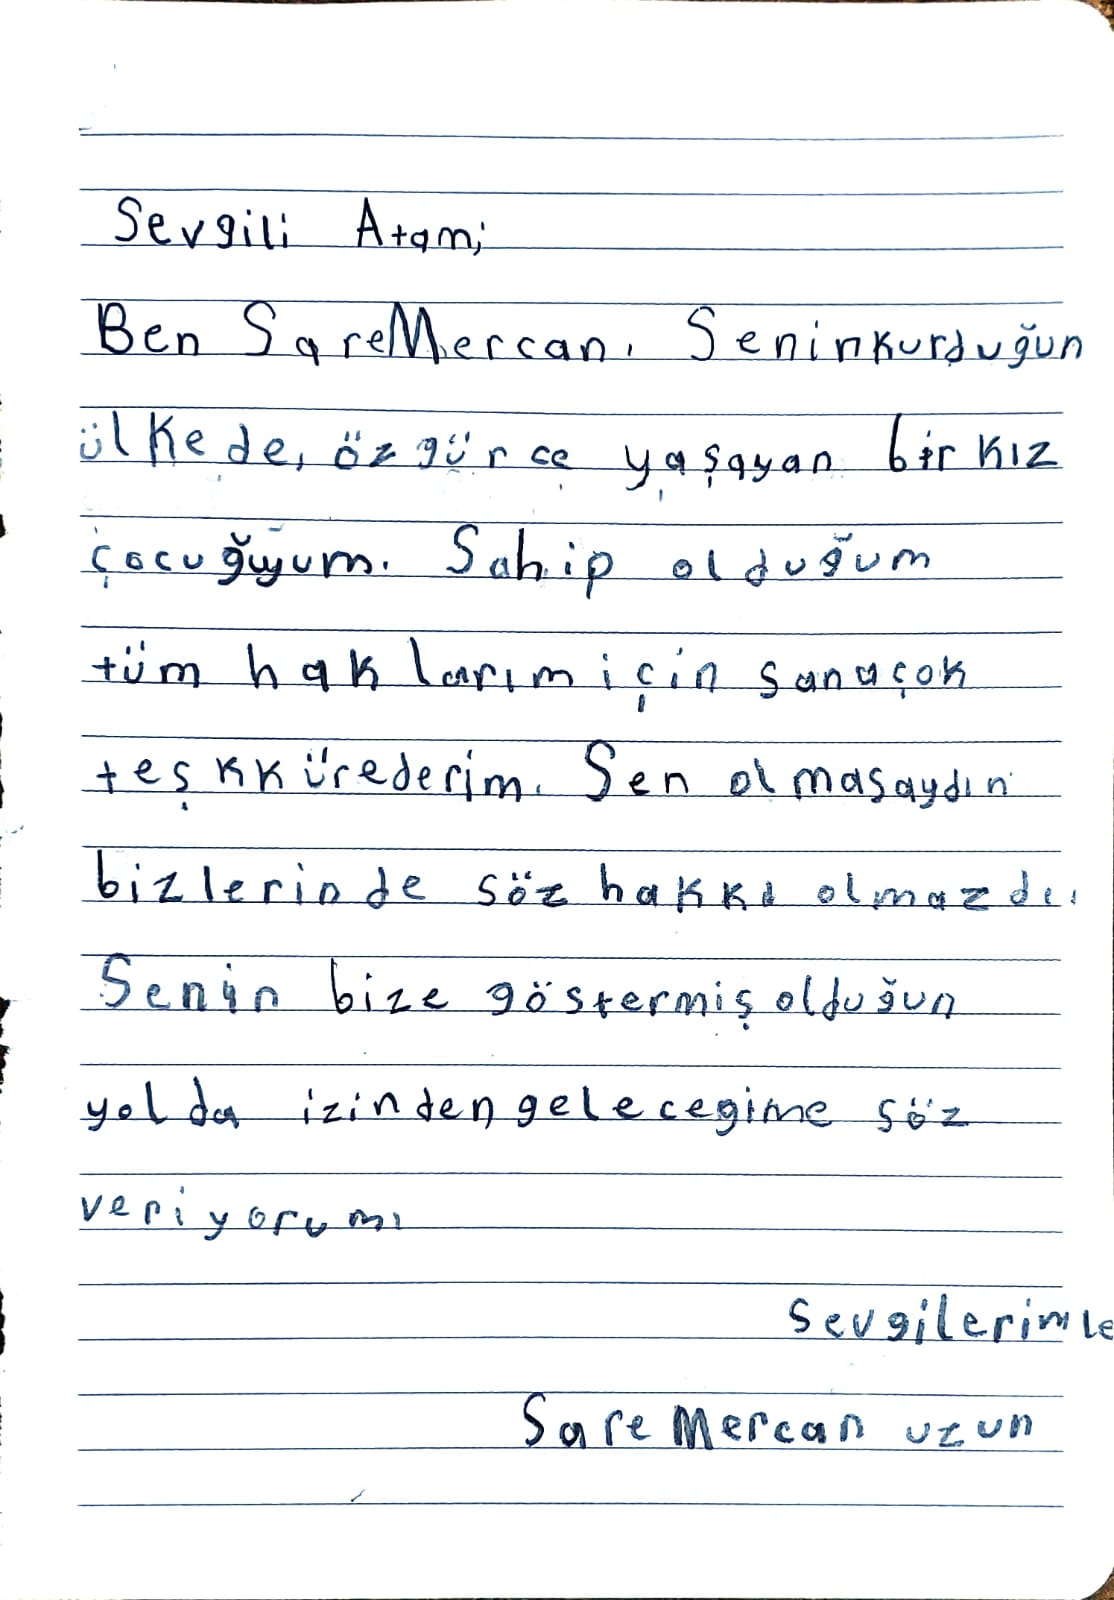 Sevgili Atam;
Ben SareMercan. Seninkurduğun
ülkede, özgürce yaşayan bir kız
çocuğuyum. Sahip olduğum
tüm haklarım için sanaçok
teşkkürederim. Sen olmasaydın
bizlerinde söz hakkı olmazdı.
Senin bize göstermiş olduğun
yolda izinden gelecegime söz
veriyorum.
Sevgilerimle
Sare Mercan uzun